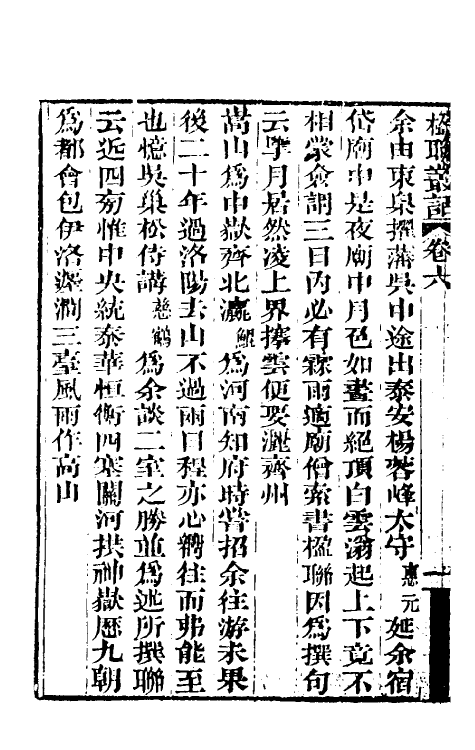 楹聯叢話 卷六 一
余由東臬擢藩吳中途出泰安楊蓉峰太守惠元延余宿
岱廟中是夜廟中月色如晝而絕頂白雲滃起上下竟不
相蒙僉謂三日內必有霖雨適廟僧索書楹聯因為撰句
云擘月居然淩上界捧雲便要灑齊州
嵩山為中嶽齊北瀛鯤為河南知府時嘗招余往游未果
後二十年過洛陽去山不過兩日程亦心嚮往而弗能至
也憶吳巢松侍講慈鶴為余談二室之勝並為述所撰聯
云近四旁惟中央統泰華恒衡四塞關河拱神嶽歷九朝
為都會包伊洛瀍澗三臺風雨作高山